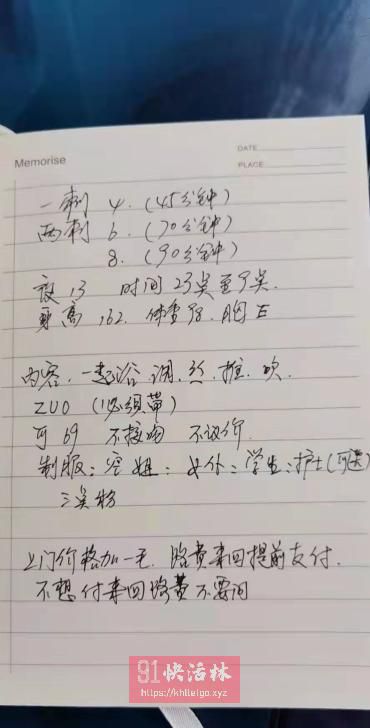 Memorise
DATE
PLACE
一刺 4. (45分钟)
两刺 6. (70分钟)
8. (90分钟)
夜13 时间23点至9点.
身高,162. 体重98. 胸E
内容. 一起浴 调. 丝. 推. 吹.
ZUO (必须带)
可69 不接吻 不议价
制服: 空姐: 女仆: 学生: 护士(可选)
三点粉
上门价格加一千. 路费来回提前支付.
不想付来回路费不要问
91快活林
https://khlleigo.xyz